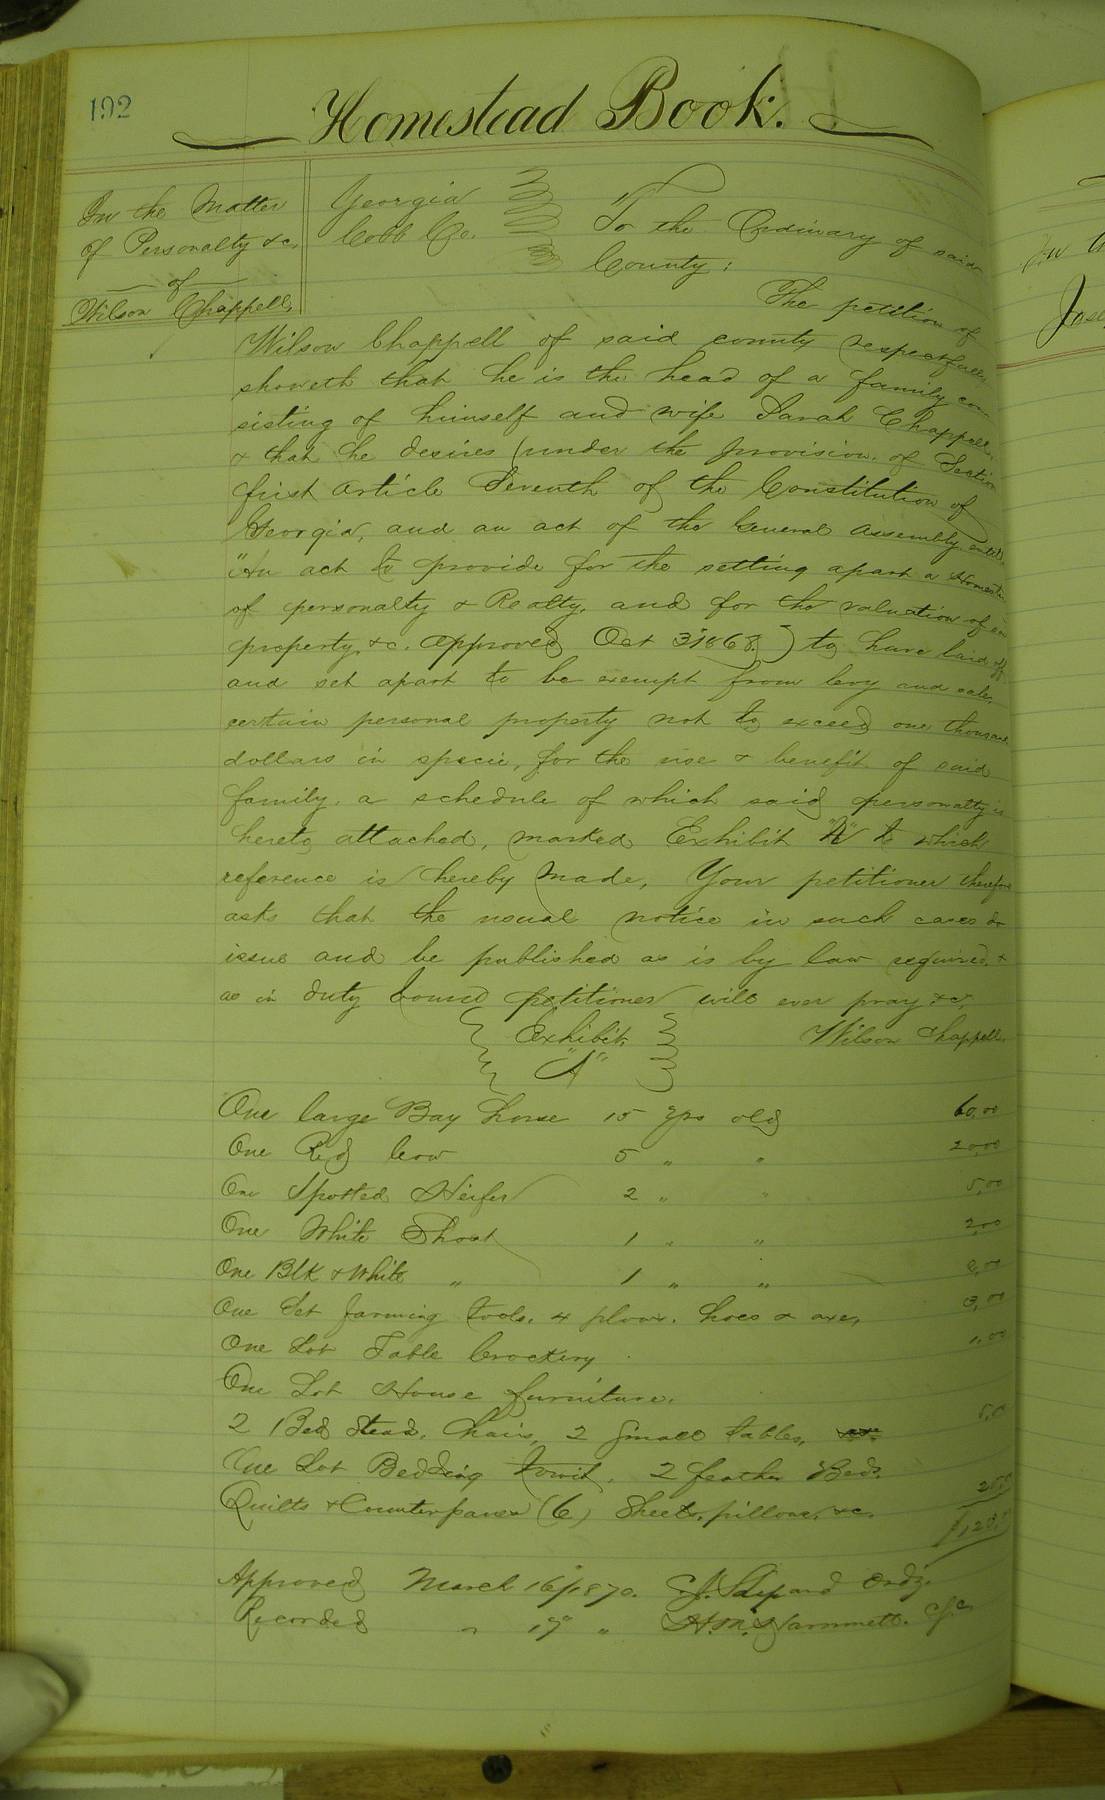 192
Homestead Book.
In the Matter
of Personalty &c.
of
Wilson Chappell,
Georgia
Cobb Co.
To the Ordinary of said
County;
The petition of
Wilson Chappell of said county respectfully
showeth that he is the head of a family con
sisting of himself and wife Sarah Chappell,
& that he desires (under the provision, of Section
first Article Seventh of the Constitution of
Georgia, and an act of the General Assembly entitl
"An act to provide for the setting apart a Homeste
of personalty & Realty, and for the valuation of
property, &c. approved Oct 3" 1868.) to have laid off
and set apart to be exempt from levy and sale,
certain personal property not to exceed one thousand
dollars in specie, for the use & benefit of said
family, a schedule of which said personalty is
hereto attached, marked Exhibit "A" to which
reference is hereby made, Your petitioner therefore
asks that the usual notice in such cases do
issue and be published as is by law required, &
as in duty bound petitioner will ever pray &c,
Exhibit
"A"
Wilson Chappell,
One large Bay horse 15 yrs old 60.00
One Red Cow 5 " " 20.00
One Spotted Heifer 2 " " 5.00
One White Shoat 1 " " 2.00
One Blk & White " 1 " " 2.00
One Set farming tools, 4 plows, hoes & axe, 3.00
One Lot Table Crockery 1.00
One Lot House furniture,
2 Bed Stead, Chairs, 2 Small tables, 5.0
One Lot Bedding towit, 2 feather Beds
Quilts & Counterpanes (6) Sheets, pillows, &c,
Approved March 16/1870. Ordy.
Recorded " 17" " H. M. Hammett. C.S.C.